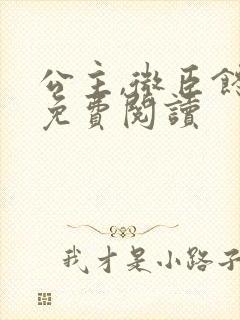 公主,微臣
免費閱讀
我才是小路子